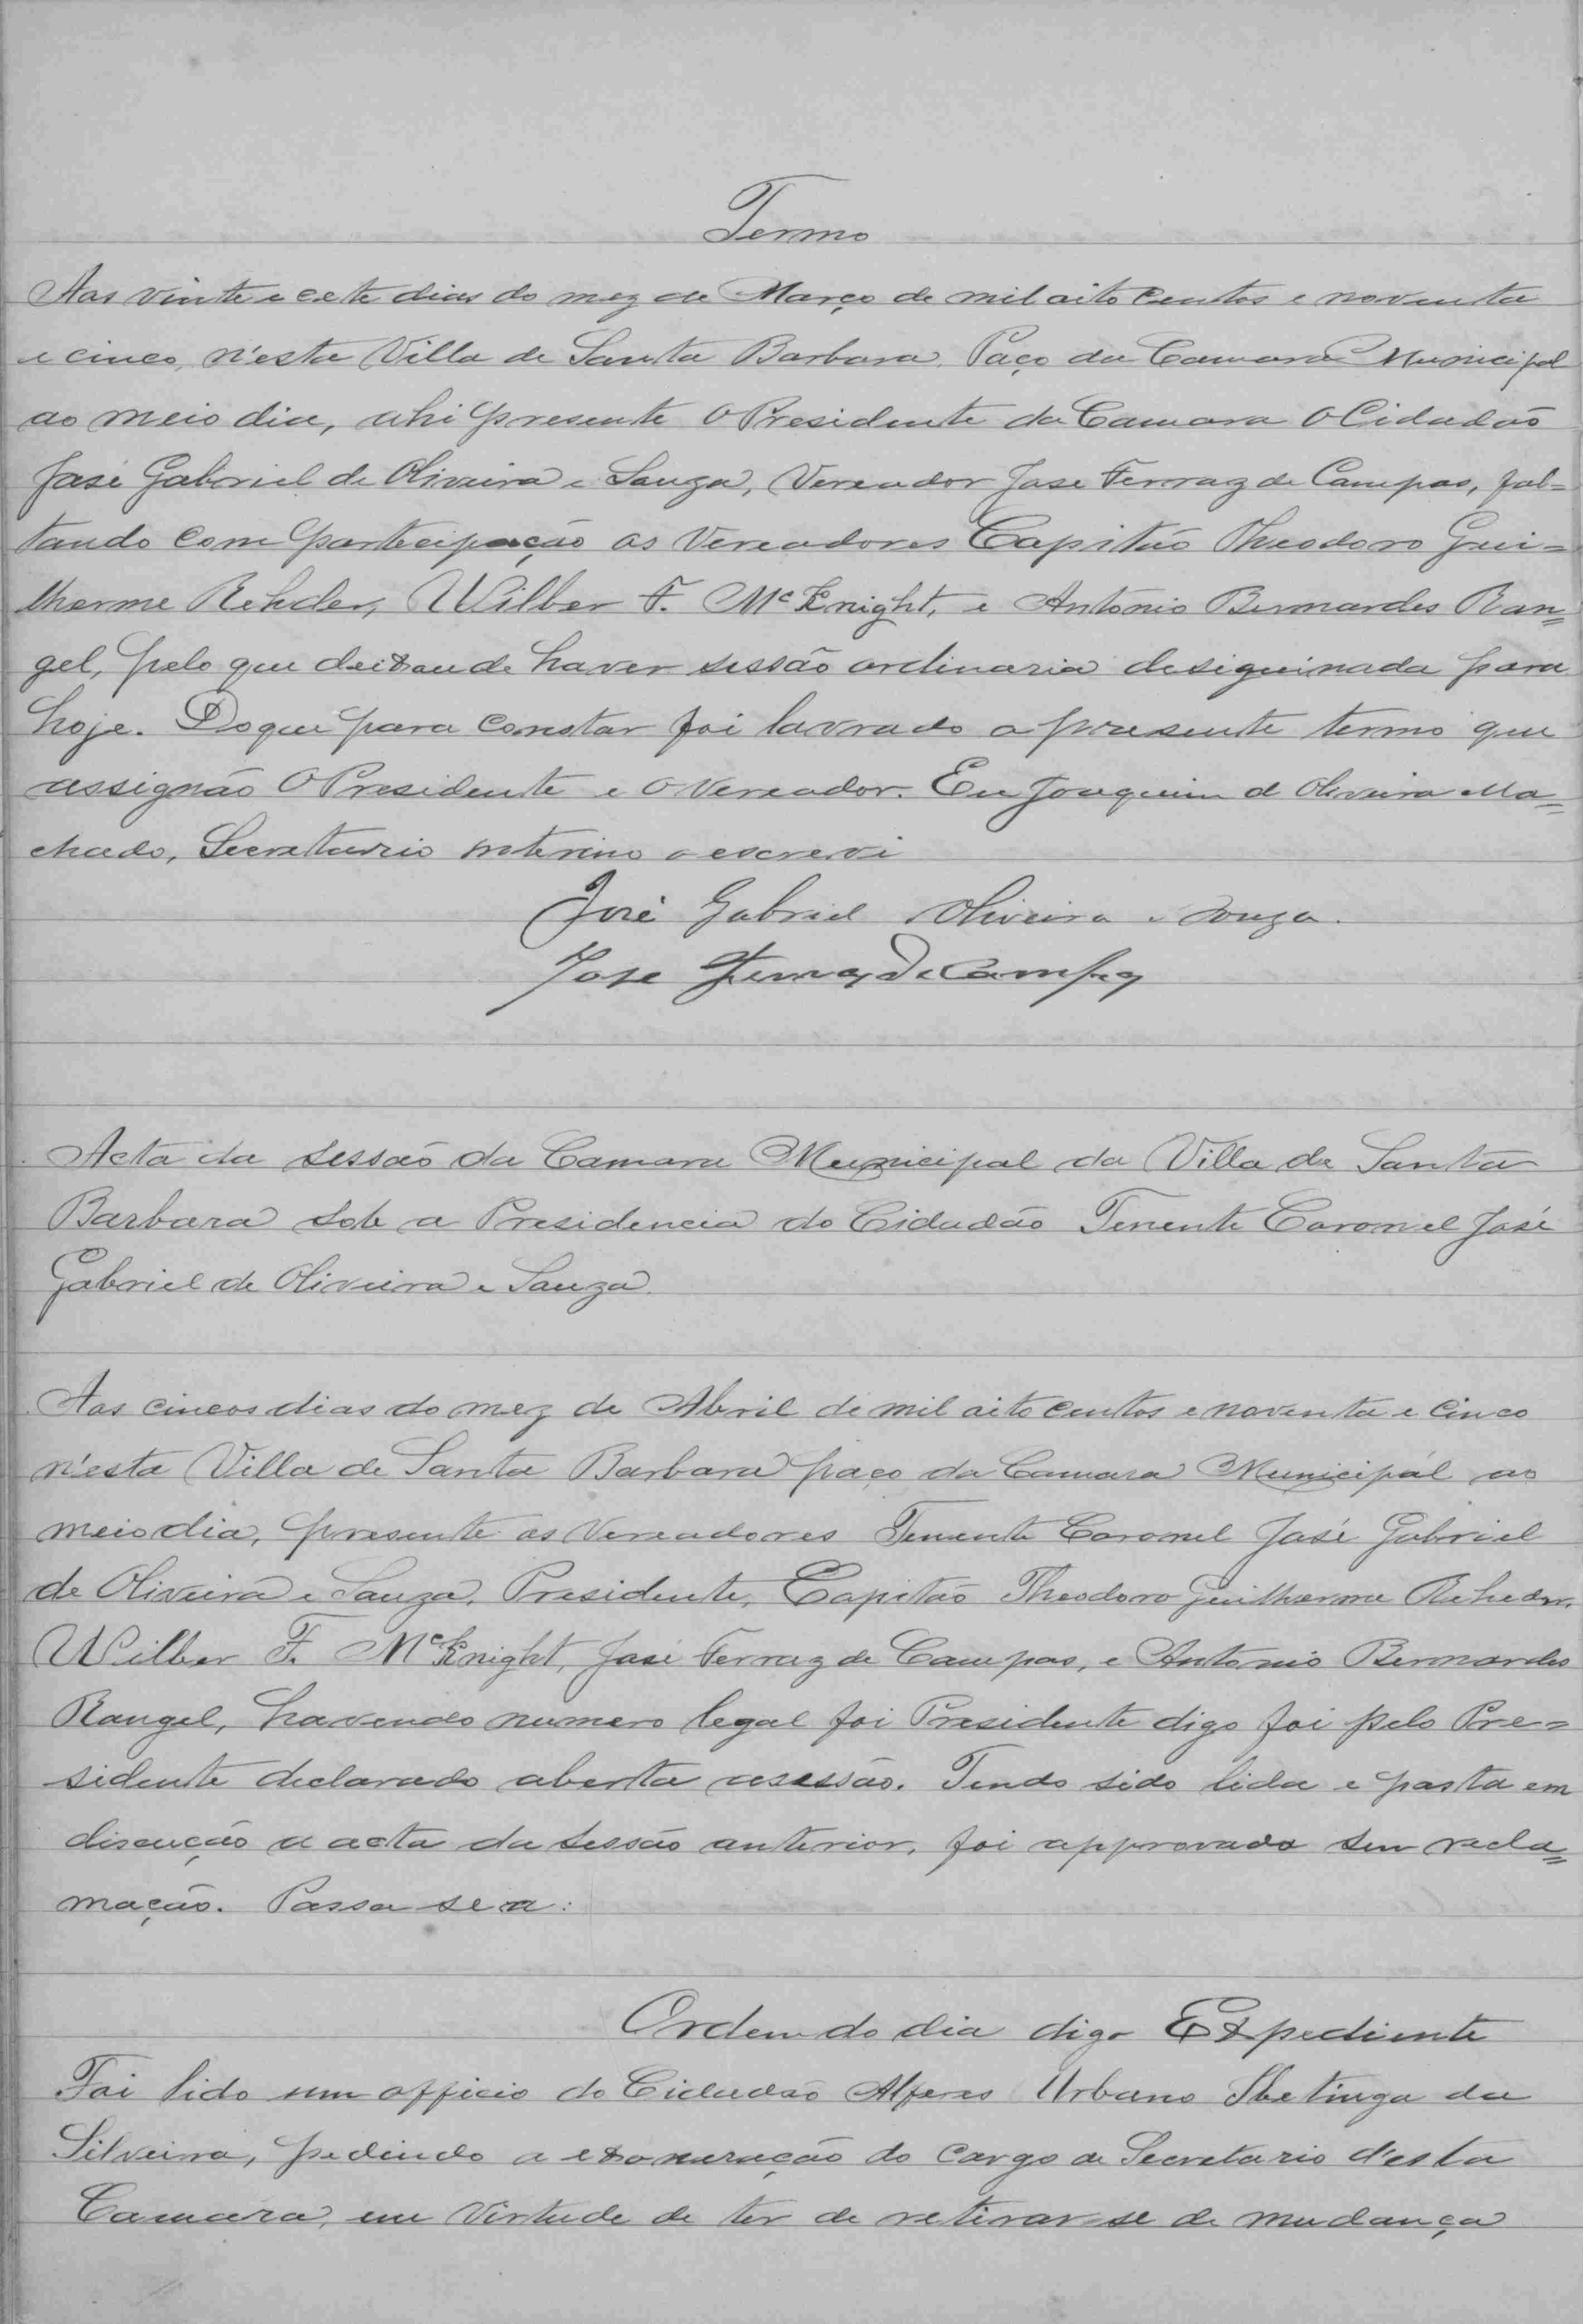 Termo
Aos vinte e cete dias do mez de Março de mil oito centos e noventa
e cinco, n'esta Villa de Santa Barbara, Paço da Camara Municipal
ao meio dia, ahi presente o Presidente da Camara o Cidadão
José Gabriel de Oliveira e Souza, Vereador Jose Ferraz de Campos, fal=
tando com participação os Vereadores Capitão Theodoro Gui=
lherme Rehder, Wilber F. McKnight, e Antonio Bernardes Ran=
gel, pelo que deixou de haver sessão ordinaria desiguinada para
hoje. Do que para constar foi lavrado o presente termo que
assignão o Presidente e o Vereador. Eu Joaquim d Oliveira Ma=
chado, Secretario interino o escrevi
José Gabriel Oliveira e Souza.
Jose Ferraz de Campos
Acta da sessão da Camara Municipal da Villa de Santa
Barbara sob a Presidencia do Cidadão Tenente Coronel José
Gabriel de Oliveira e Souza.
Aos cincos dias do mez de Abril de mil oito centos e noventa e cinco
n'esta Villa de Santa Barbara paço da Camara Municipal ao
meio dia, presente os Vereadores Tenente Coronel José Gabriel
de Oliveira e Souza, Presidente, Capitão Theodoro Guilherme Rehder,
Wilber F. McKnight, José Ferraz de Campos, e Antonio Bernardes
Rangel, havendo numero legal foi Presidente digo foi pelo Pre=
sidente declarado aberta a sessão. Tendo sido lida e posta em
discução a acta da sessão anterior, foi approvada sem recla=
mação. Passa se a:
Ordem do dia digo Expediente
Foi lido um officio do Cidadão Alferes Urbano Ibetinga da
Silveira, pedindo a exoneração do cargo de Secretario d'esta
Camara, em virtude de ter de retirar-se de mudança